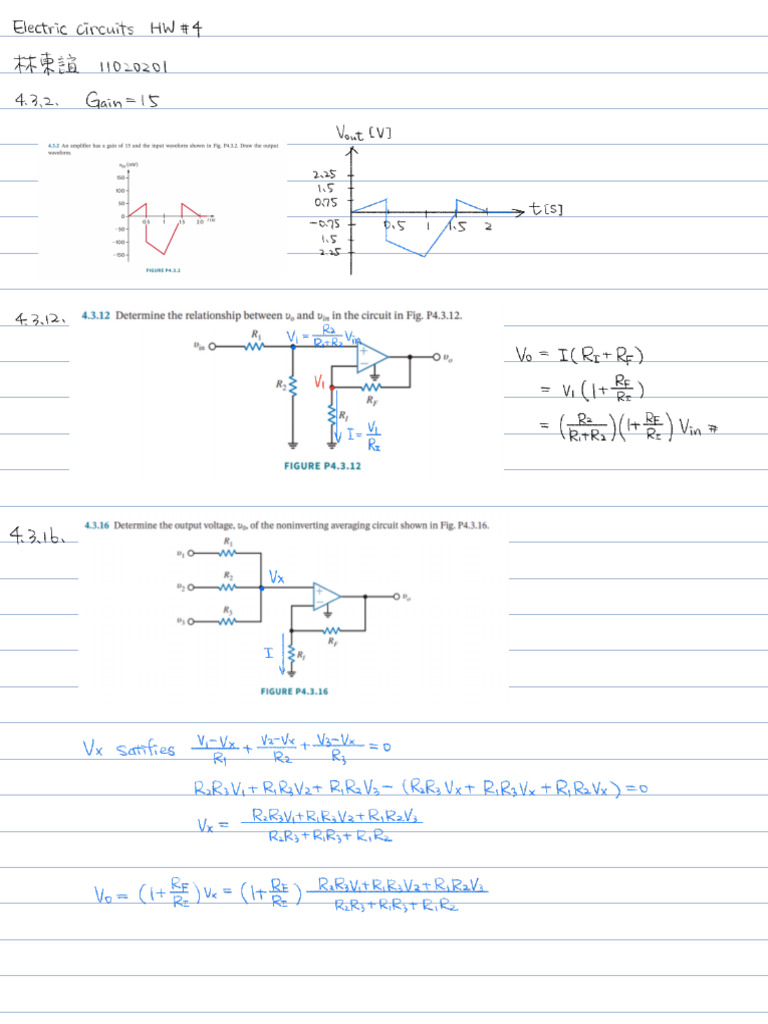 Electric circuits HW #4
林東誼 11020201
4.3.2. Gain = 15
4.3.2 An amplifier has a gain of 15 and the input waveform shown in Fig. P4.3.2. Draw the output
waveform.
v_in (mV)
150
100
50
0
-50
-100
-150
0.5 1 1.5 2.0 t (s)
FIGURE P4.3.2
Vout [V]
2.25
1.5
0.75
-0.75
1.5
2.25
0.5 1 1.5 2
t [s]
4.3.12. 4.3.12 Determine the relationship between v_o and v_in in the circuit in Fig. P4.3.12.
v_in R_1 V_1 = R_2/(R_1+R_2) V_in
+
−
v_o
R_2 V_1 R_F
R_I
I = V_1/R_I
FIGURE P4.3.12
V_o = I (R_I + R_F)
= V_1 (1 + R_F/R_I)
= (R_2/(R_1+R_2)) (1 + R_F/R_I) V_in #
4.3.16. 4.3.16 Determine the output voltage, v_o, of the noninverting averaging circuit shown in Fig. P4.3.16.
R_1
v_1
R_2 V_x
v_2
+
−
v_o
R_3
v_3
R_F
I R_I
FIGURE P4.3.16
V_x satifies (V_1−V_x)/R_1 + (V_2−V_x)/R_2 + (V_3−V_x)/R_3 = 0
R_2R_3V_1 + R_1R_3V_2 + R_1R_2V_3 − (R_2R_3V_x + R_1R_3V_x + R_1R_2V_x) = 0
V_x = (R_2R_3V_1 + R_1R_3V_2 + R_1R_2V_3)/(R_2R_3 + R_1R_3 + R_1R_2)
V_o = (1 + R_F/R_I) V_x = (1 + R_F/R_I) (R_2R_3V_1 + R_1R_3V_2 + R_1R_2V_3)/(R_2R_3 + R_1R_3 + R_1R_2)